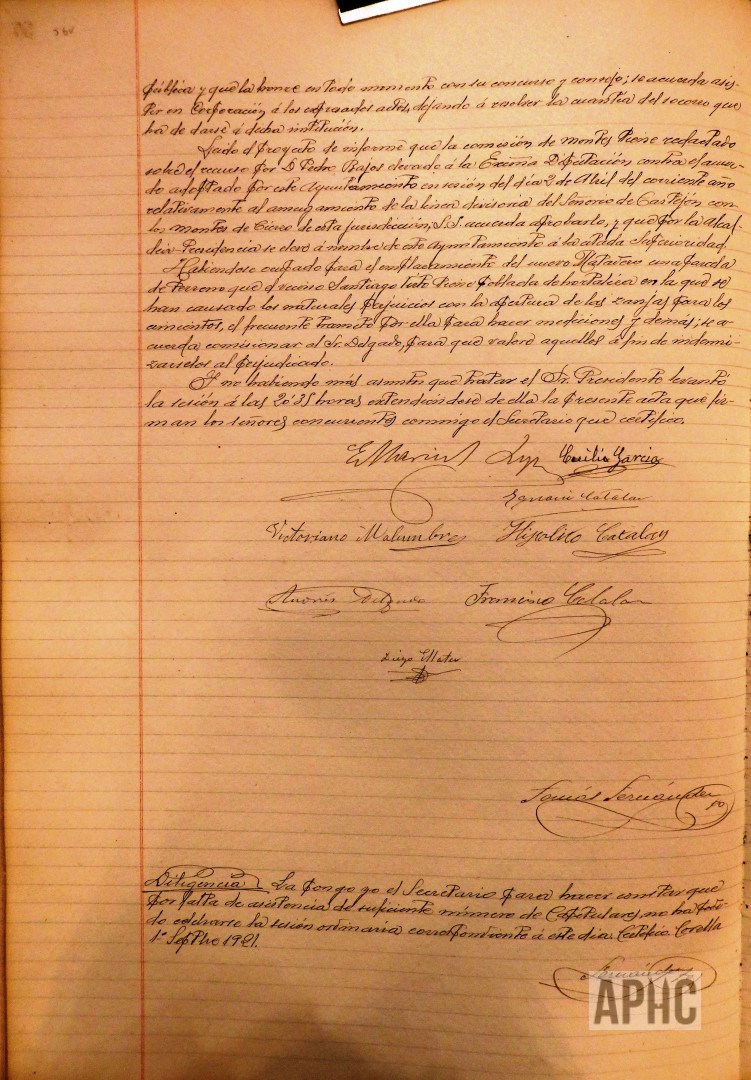 pública y que la honre en todo momento con su concurso y consejo; se acuerda asis-
tir en Corporación á los expresados actos, dejando á resolver la cuantía del socorro que
ha de darse á dicha institución.
Leído el proyecto de informe que la comisión de montes tiene redactado
sobre el recurso por D. Pedro Bajos elevado á la Exima Diputación contra el acuer-
do adoptado por este Ayuntamiento en sesión del día 2 de Abril del corriente año
relativamente al amugamiento de la línea divisoria del Señorío de Castejón con
los montes de Cierzo de esta jurisdicción, S.S. acuerda aprobarlo, y que por la Alcal-
dia-Presidencia se eleve á nombre de este Ayuntamiento á la citada Superioridad.
Habiéndose ocupado para el emplazamiento del nuevo Matadero una parcela
de terreno que el vecino Santiago tiene poblada de hortaliza en la que se
han causado los naturales perjuicios con la apertura de las zanjas para los
cimientos, el frecuente tránsito por ella para hacer mediciones y demás; se a-
cuerda comisionar al Sr. Delgado, para que valore aquellos á fin de indemni-
zarselos al perjudicado.
Y no habiendo más asuntos que tratar el Sr. Presidente levantó
la sesión á las 20'35 horas extendiéndose de ella la presente acta que fir-
man los señores concurrentes conmigo el Secretario que certifico.
Cecilio García
Ignacio Catalán
Victoriano Malumbres Hipolito Catalan
Andrés Delgado Francisco Catalan
Diego Mateo
Tomás Fernández
Diligencia La pongo yo el Secretario para hacer constar que
por falta de asistencia de suficiente número de Capitulares, no ha podi-
do celebrarse la sesión ordinaria correspondiente á este día. Certifico Corella
1º Septbre 1921.
Fernández
APHC